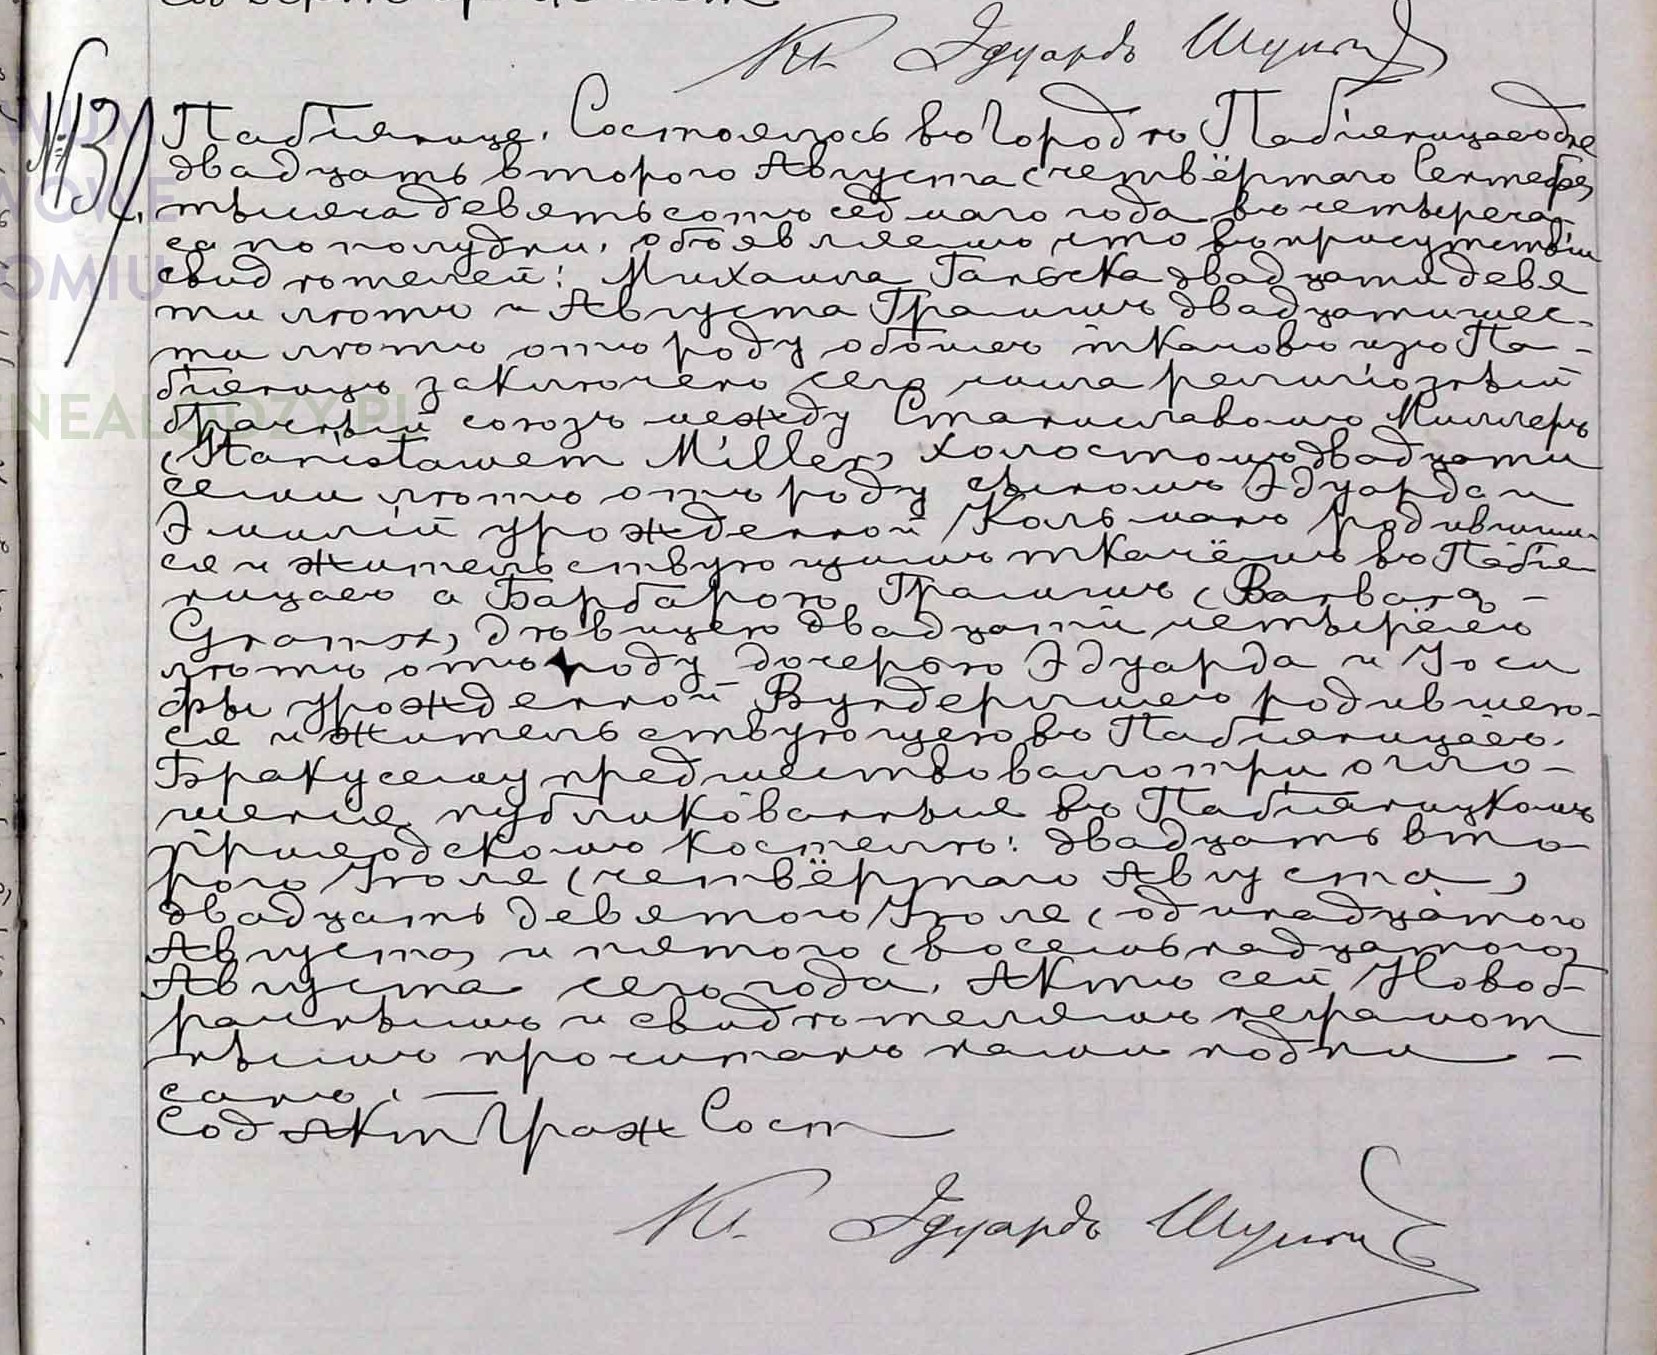 Кс. Эдуардъ
№ 130.
Пабіянице. Состоялось въ городѣ Пабіяницахъ
двадцать второго Августа (четвёртаго Сентября)
тысяча девятьсотъ седьмаго года въ четыре ча-
са по полудни. Объявляемъ что въ присутствіи
свидѣтелей: Михаила двадцати девя
ти лѣтъ и Августа Грамшъ двадцати шес-
ти лѣтъ отъ роду обоихъ ткачовъ изъ Па-
біяницъ заключенъ сего числа религіозный
брачный союзъ между Станиславомъ Миллеръ
(Stanisławem Miller) холостомъ двадцати
семи лѣтъ отъ роду сыномъ Эдуарда и
Эмиліи урожденной Кольманъ родившим-
ся и жительствующимъ ткачёмъ въ Пабія
ницахъ а Барбарою Грамшъ (Barbarą -
Gramsz) дѣвицею двадцати четырёхъ
лѣтъ отъ роду дочерью Эдуарда и Іоси
фы урожденной Вундерлихъ родившею-
ся и жительствующею въ Пабіяницахъ.
Браку сему предшествовало три огло-
шенія публикованныя въ Пабіяницкомъ
приходскомъ костелѣ: двадцать вто-
рого Іюля (четвёртаго Августа)
двадцать девятого Іюля (одинадцатого
Августа) и пятого (восемьнадцатого)
Августа сего года. Актъ сей Новоб-
рачнымъ и свидѣтелямъ неграмот
нымъ прочитанъ нами подпи -
санъ. —
Сод Акт Граж Сост
Кс. Эдуардъ